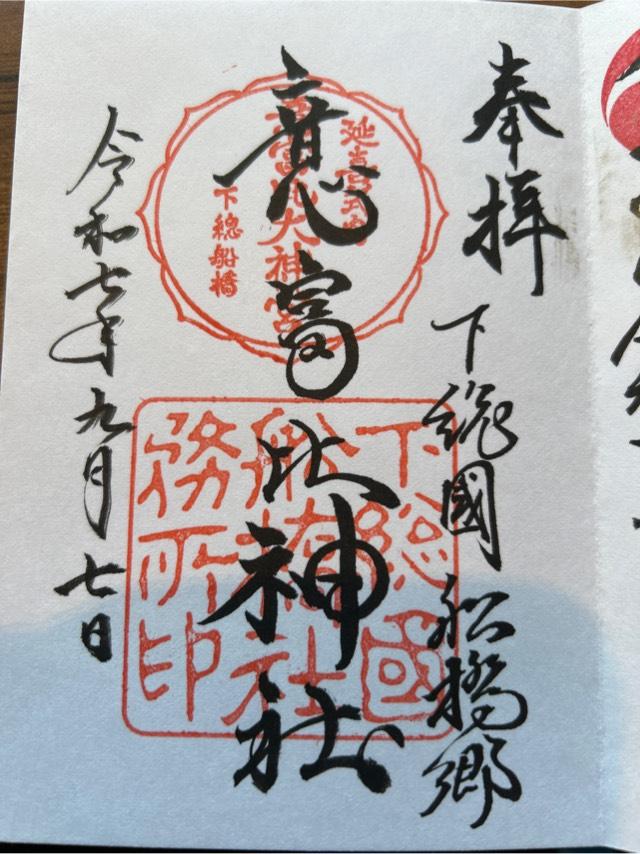 奉拝
下総國船橋郷
意富比神社
令和七年九月七日
延喜式内
意富比大神宮
下総船橋
下総國
船橋社
務所印